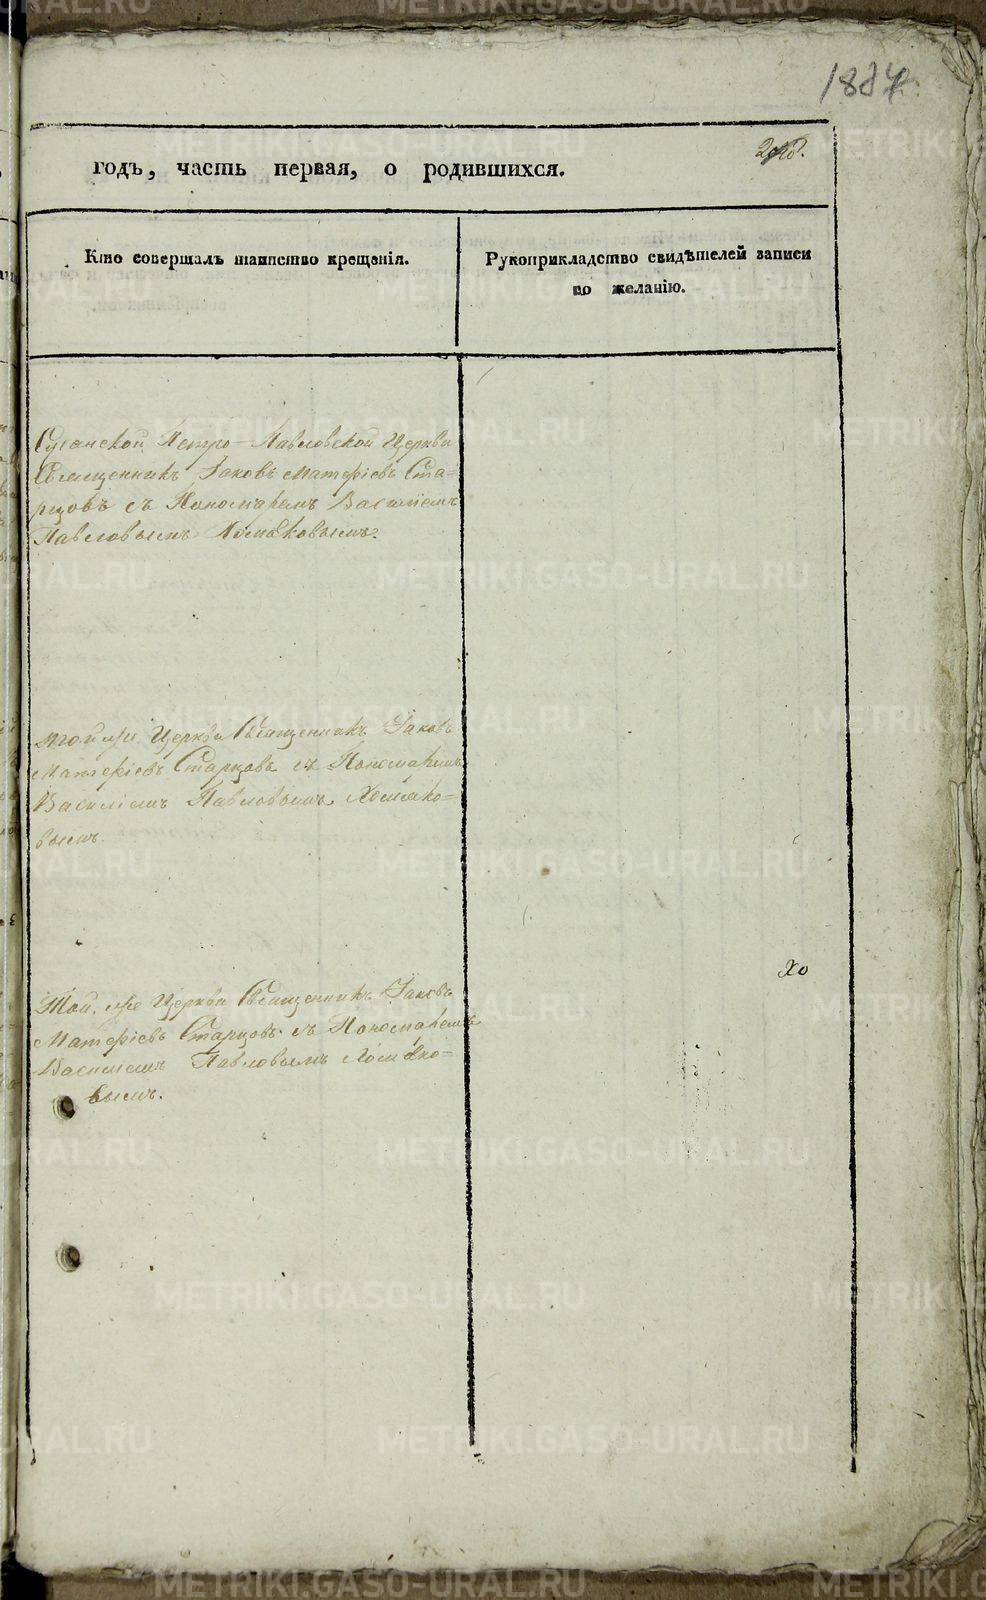 годъ, часть первая, о родившихся.
Кто совершалъ таинство крещенія.
Рукоприкладство свидѣтелей записи
по желанію.
Петро-Павловской Церкви
Священникъ Іаковъ Матфіевъ Стар-
рцовъ съ Пономаремъ Василіемъ
Павловымъ Хомяковымъ.
той же Церкви Священникъ Іаковъ
Матфіевъ Старцовъ съ Пономаремъ
Василіемъ Павловымъ Хомяко-
вымъ.
Той же Церкви Священникъ Іаковъ
Матфіевъ Старцовъ съ Пономаремъ
Василіемъ Павловымъ Хомяко-
вымъ.
Хо
METRIKI.GASO-URAL.RU